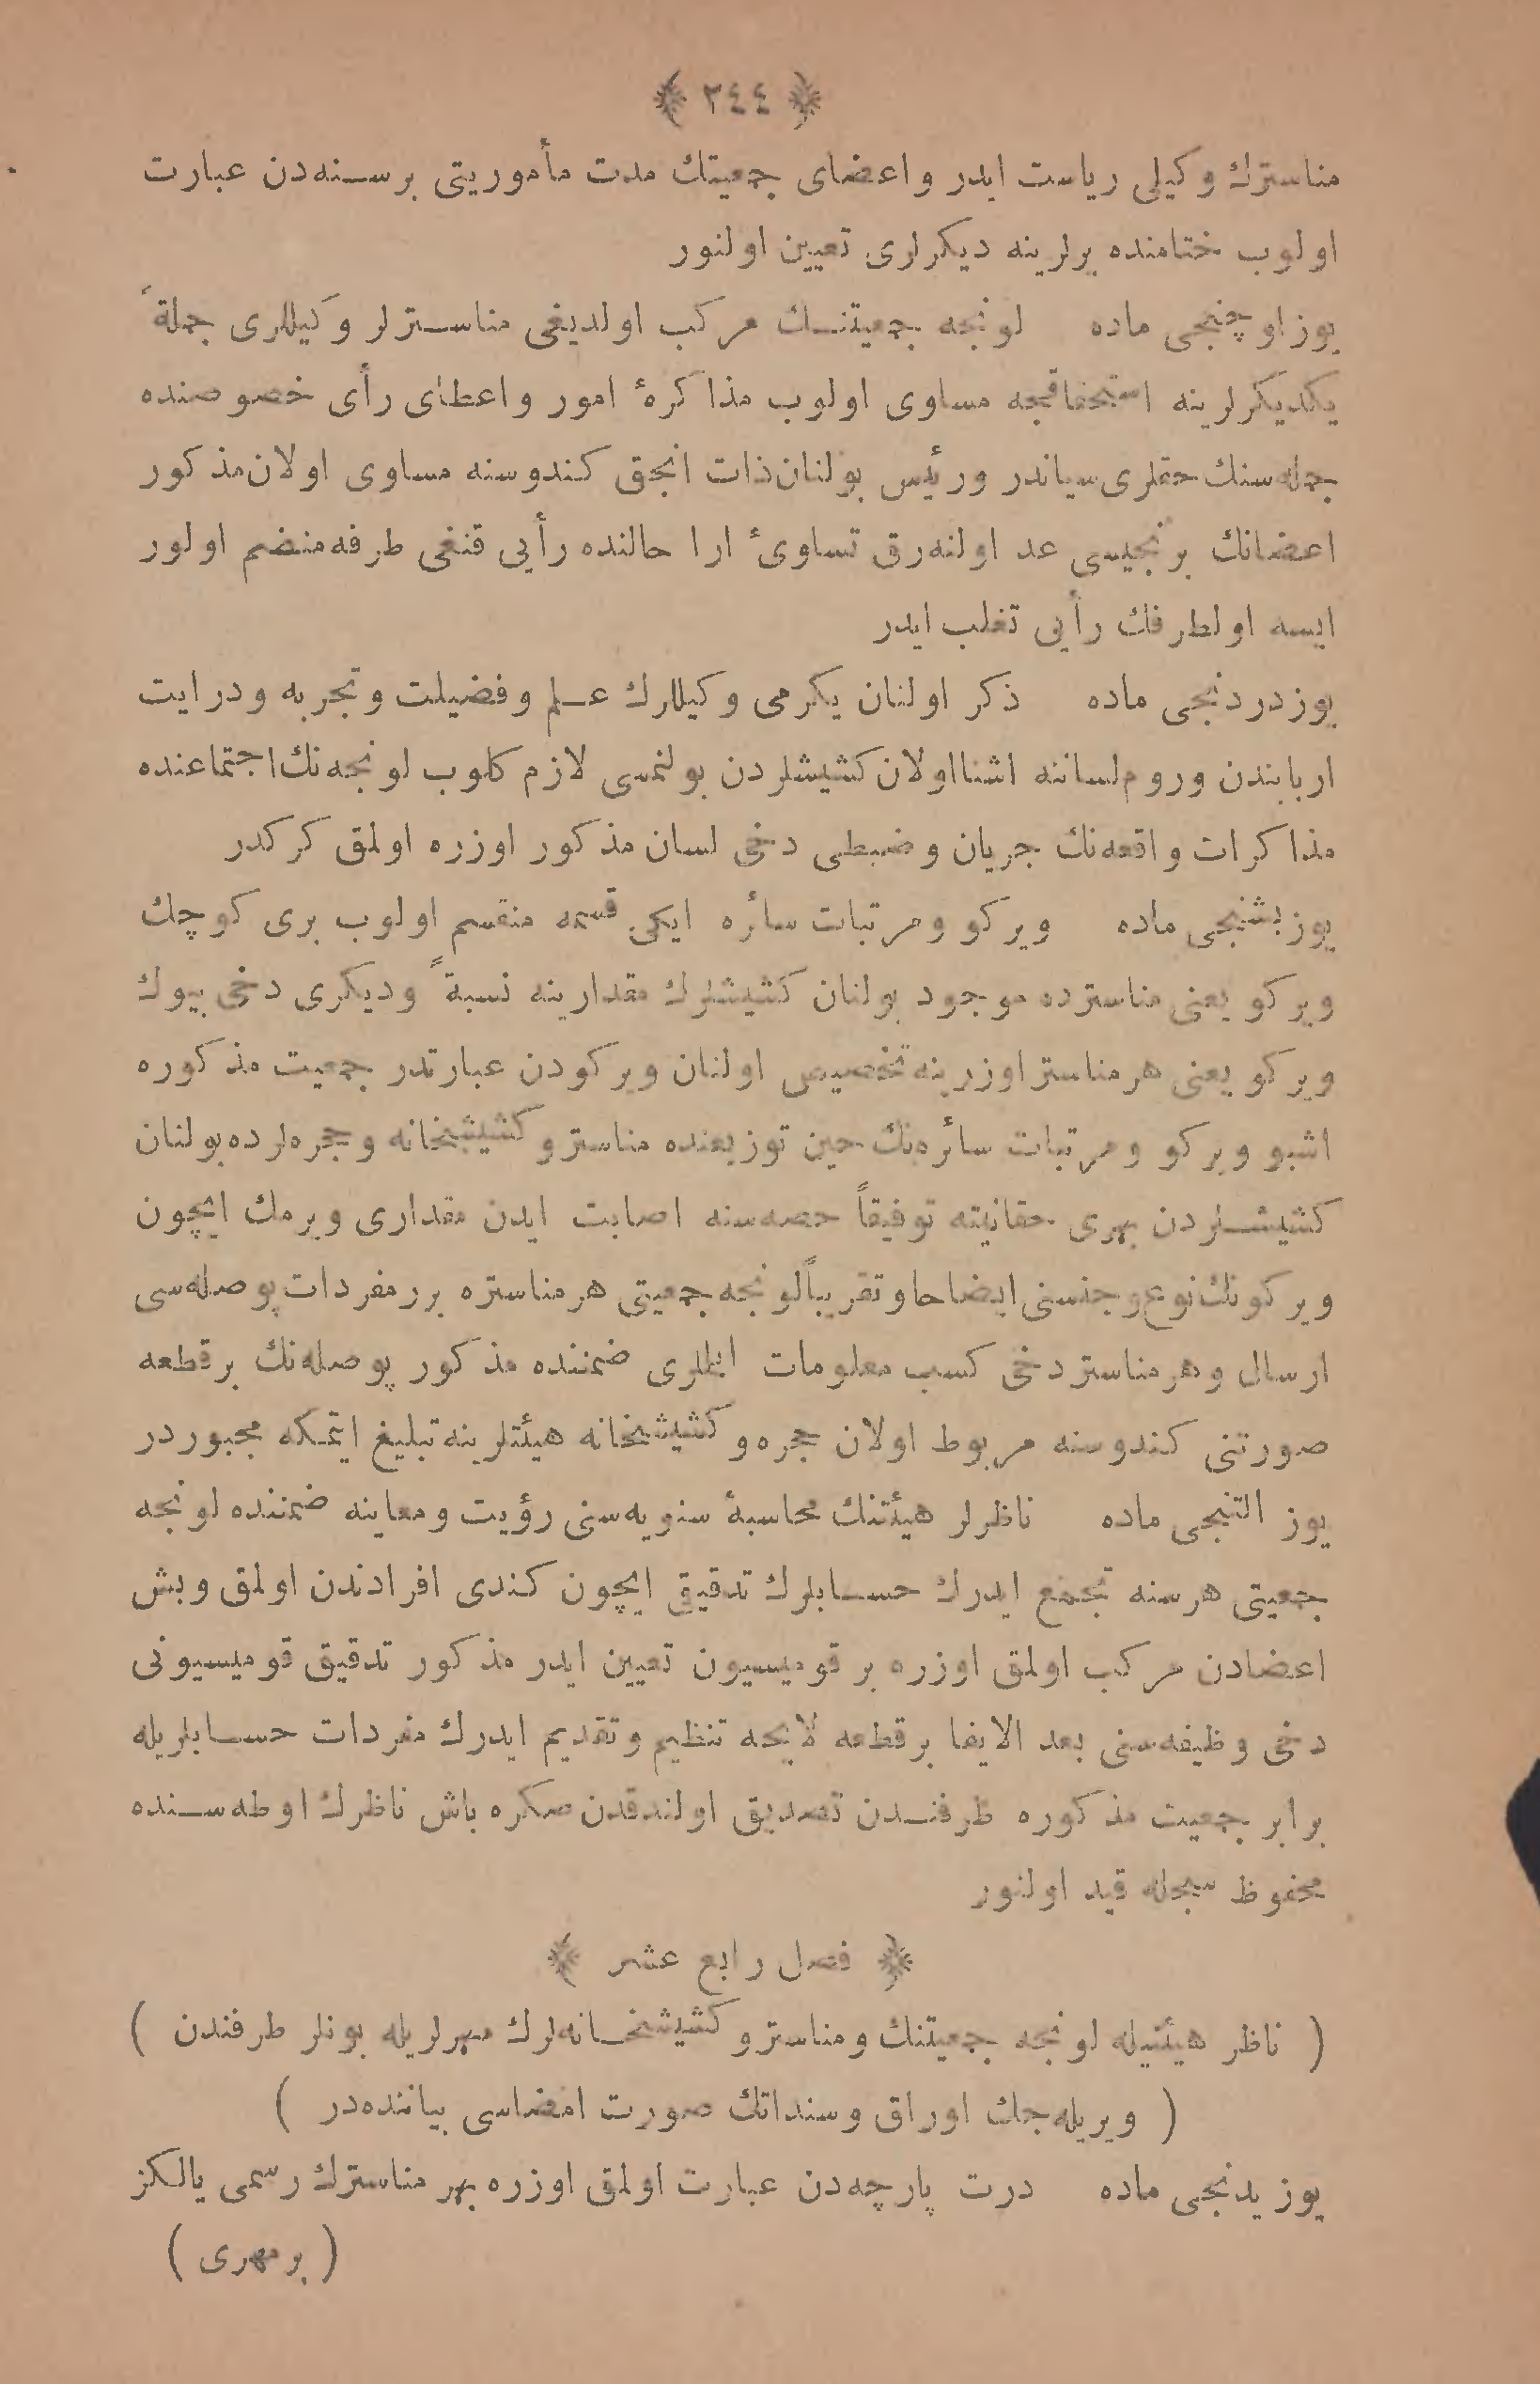 ﴿ ٣٤٤ ﴾
مناسترك وكيلى رياست ايدر واعضاى جمعيتك مدت مأموريتى برسنه‌دن عبارت
اولوب ختامنده يرلرينه ديكرلرى تعيين اولنور
يوزاوچنجى ماده لونجه جمعيتنك مركب اولديغى مناسترلر وكيللرى جملةً
يكديكرلرينه استحقاقجه مساوى اولوب مذاكرۀ امور واعطاى رأى خصوصنده
جمله‌سنك حقلرى سياندر ورئيس بولنان ذات انجق كندوسنه مساوى اولان مذكور
اعضانك برنجيسى عد اولنه‌رق تساوىٔ ارا حالنده رأيى قنغى طرفه منضم اولور
ايسه اولطرفك رأيى تغلب ايدر
يوزدردنجى ماده ذكر اولنان يكرمى وكيللرك علم وفضيلت وتجربه ودرايت
اربابندن وروم لساننه اشنا اولان كشيشلردن بولنمسى لازم كلوب لونجه‌نك اجتماعنده
مذاكرات واقعه‌نك جريان وضبطى دخى لسان مذكور اوزره اولمق كركدر
يوزبشنجى ماده ويركو ومرتبات سائره ايكى قسمه منقسم اولوب برى كوچك
ويركو يعنى مناسترده موجود بولنان كشيشلرك مقدارينه نسبةً وديكرى دخى بيوك
ويركو يعنى هرمناستر اوزرينه تخصيص اولنان ويركودن عبارتدر جمعيت مذكوره
اشبو ويركو ومرتبات سائره‌نك حين توزيعنده مناستر وكشيشخانه وحجره‌لرده بولنان
كشيشلردن بهرى حقانيته توفيقاً حصه‌سنه اصابت ايدن مقدارى ويرمك ايچون
ويركونك نوع وجنسنى ايضاحا وتقريباً لونجه جمعيتى هرمناستره برر مفردات پوصله‌سى
ارسال وهرمناستر دخى كسب معلومات ايتملرى ضمننده مذكور پوصله‌نك برقطعه
صورتنى كندوسنه مربوط اولان حجره وكشيشخانه هيئتلرينه تبليغ ايتمكه مجبوردر
يوز التنجى ماده ناظرلر هيئتنك محاسبۀ سنويه‌سنى رؤيت ومعاينه ضمننده لونجه
جمعيتى هرسنه تجمع ايدرك حسابلرك تدقيقى ايچون كندى افرادندن اولمق وبش
اعضادن مركب اولمق اوزره بر قوميسيون تعيين ايدر مذكور تدقيق قوميسيونى
دخى وظيفه‌سنى بعد الايفا برقطعه لايحه تنظيم وتقديم ايدرك مفردات حسابلريله
برابر جمعيت مذكوره طرفندن تصديق اولندقدن صكره باش ناظرك اوطه‌سنده
محفوظ سجله قيد اولنور
﴿ فصل رابع عشر ﴾
( ناظر هيئتيله لونجه جمعيتنك ومناستر وكشيشخانه‌لرك مهرلريله بونلر طرفندن )
( ويريله‌جك اوراق وسنداتك صورت امضاسى بياننده‌در )
يوز يدنجى ماده درت پارچه‌دن عبارت اولمق اوزره بهر مناسترك رسمى يالكز
( برمهرى )